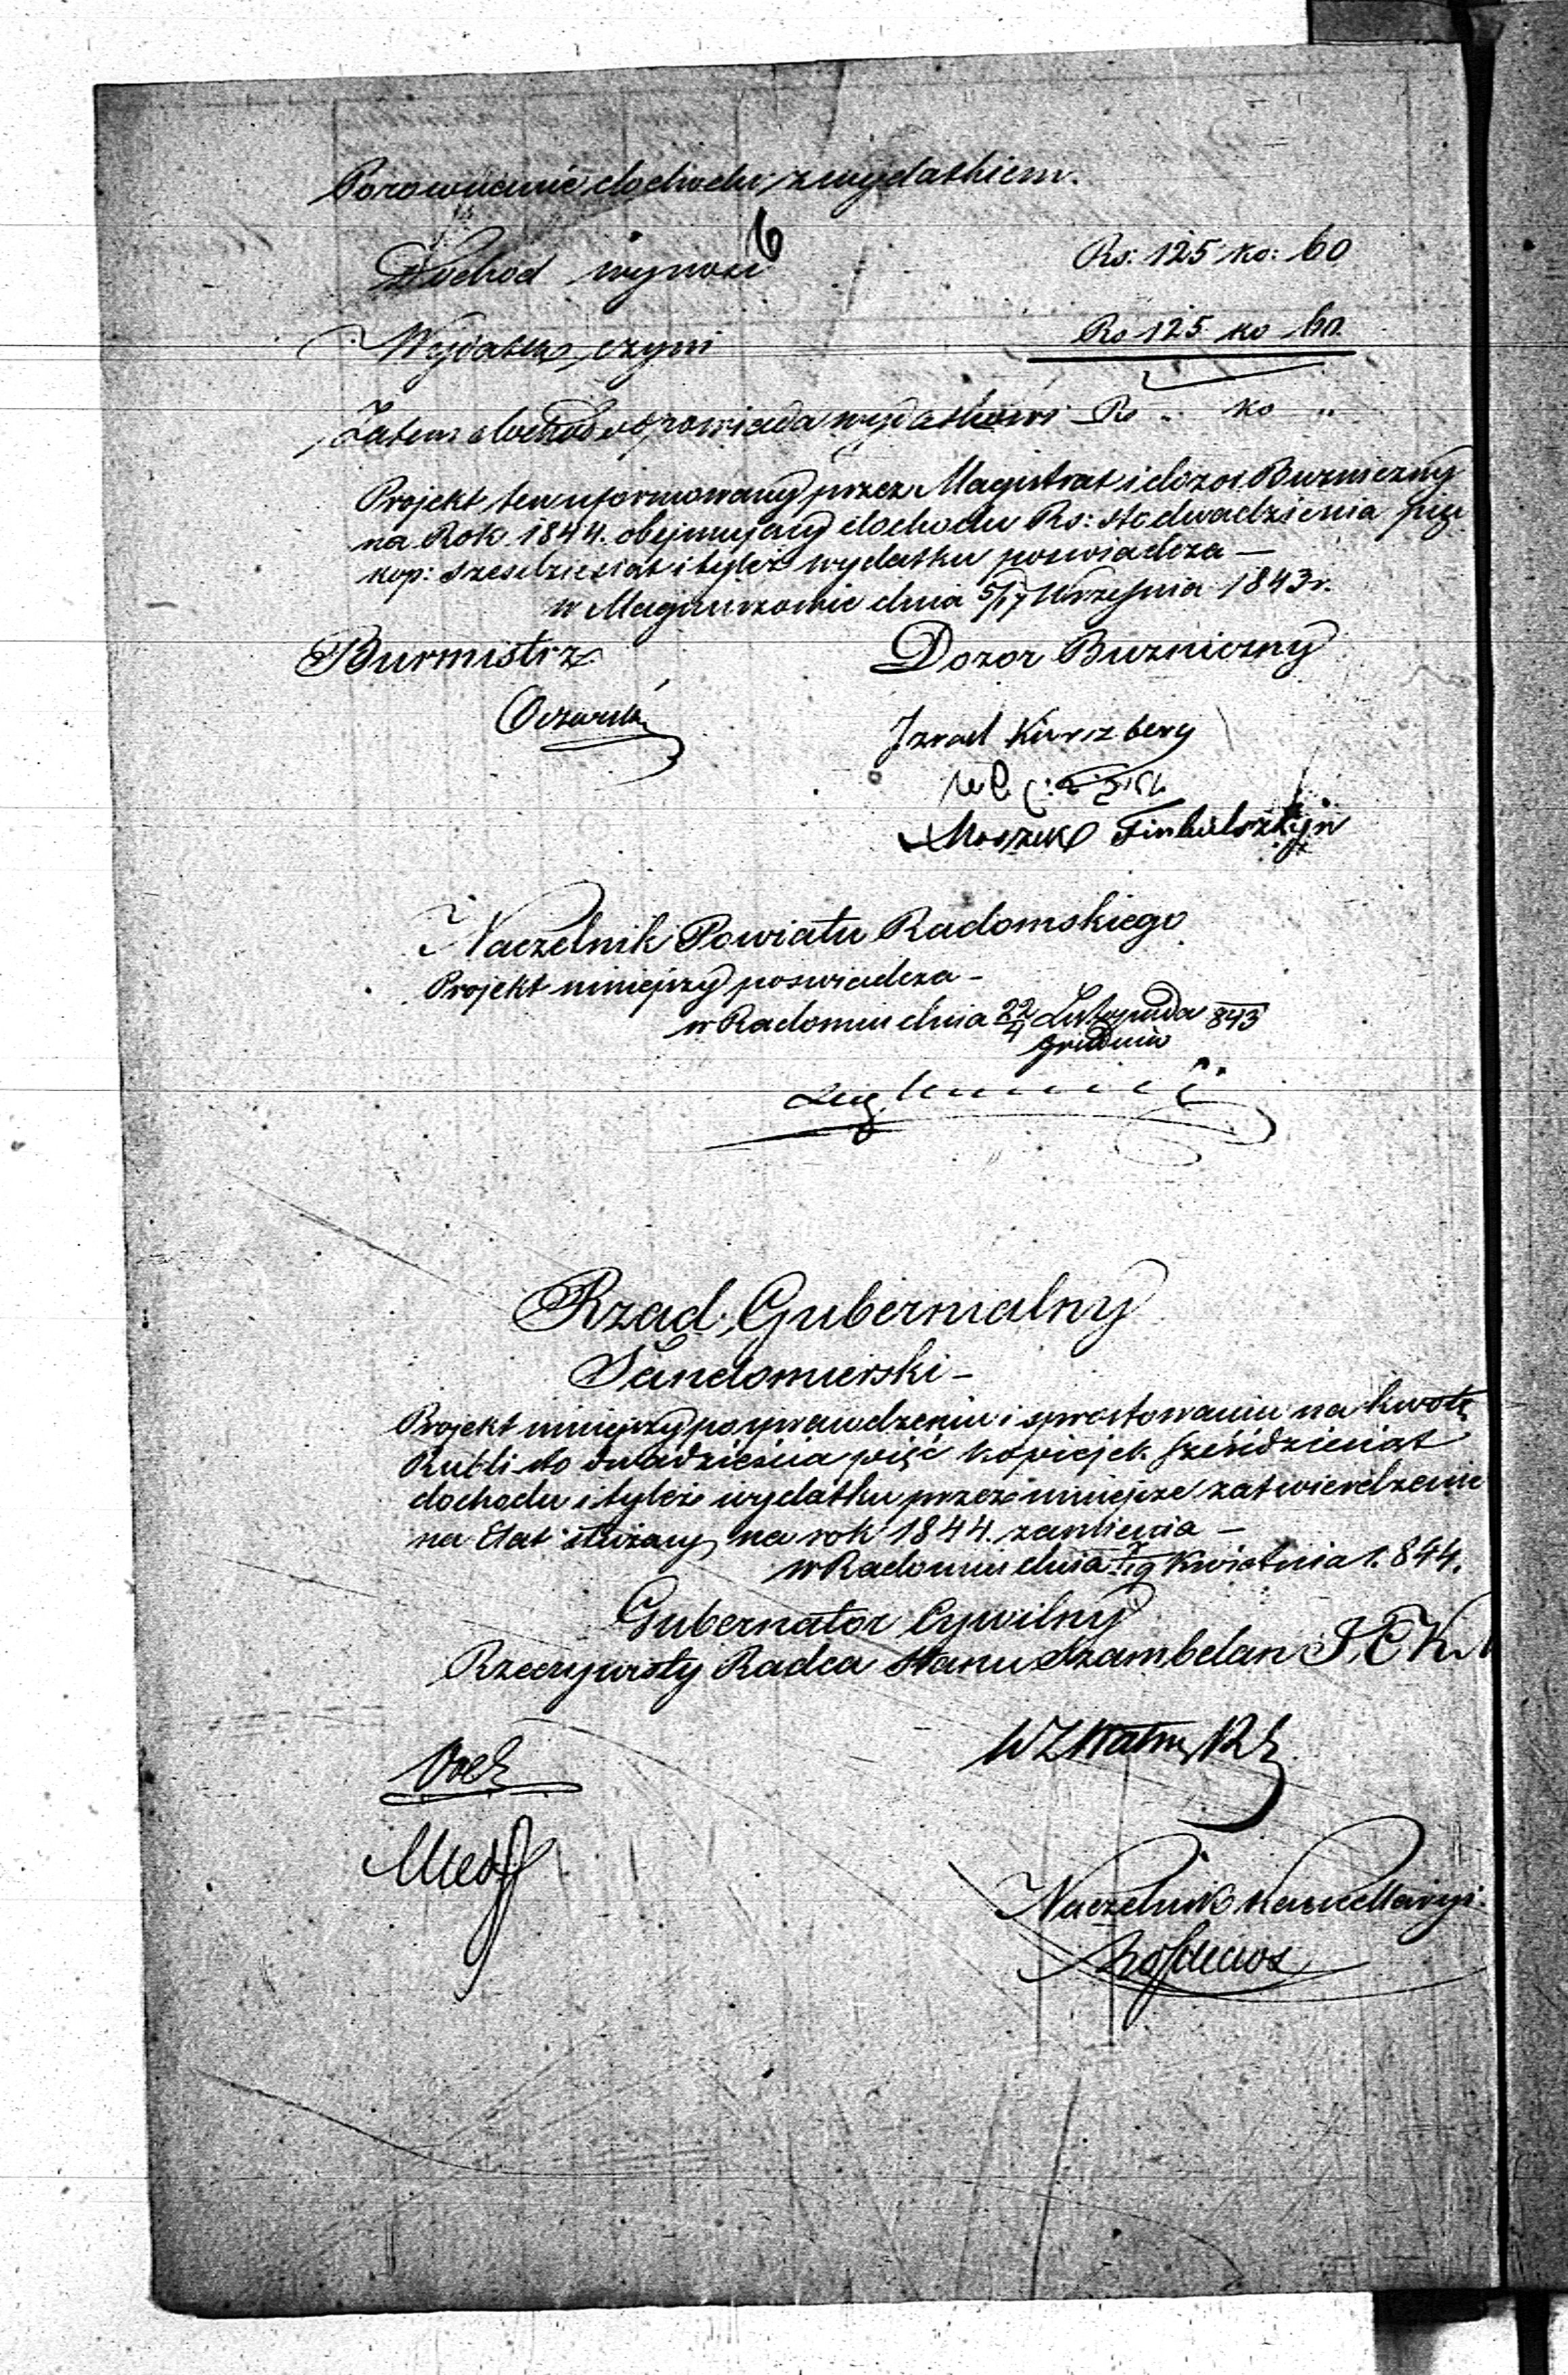 Porownanie dochodu z wydatkiem.
6
Dochod wynosi Rs: 125 ko: 60
Wydatek czyni Rs 125 ko 60.
Zatem dochod odpowiada wydatkowi Rs „ ko „
Projekt ten uformowany przez Magistrat i dozor Buzniczny
na Rok 1844. obejmujący dochodu Rs: sto dwadziescia pięć
kop: szesdziesiat i tyleż wydatku poswiadcza —
w Magnuszewie dnia 5/17 Wrzesnia 1843 r.
Burmistrz Dozor Buzniczny
Izrael Kurszberg
Moszek Finkielsztejn
Naczelnik Powiatu Radomskiego
Projekt niniejszy poswiadcza —
w Radomiu dnia 22/4 Listopada/Grudnia 843
Rząd Gubernialny
Sandomierski —
Projekt niniejszy po sprawdzeniu i sprostowaniu na kwotę
Rubli sto dwadzieścia pięć kopiejek sześćdziesiat
dochodu i tyleż wydatku przez niniejsze zatwierdzenie
na Etat służący na rok 1844. zamienia —
w Radomiu dnia 7/19 Kwietnia 1.844.
Gubernator Cywilny
Rzeczywisty Radca Stanu Szambelan J. C. K. M
Naczelnik Kancellaryi